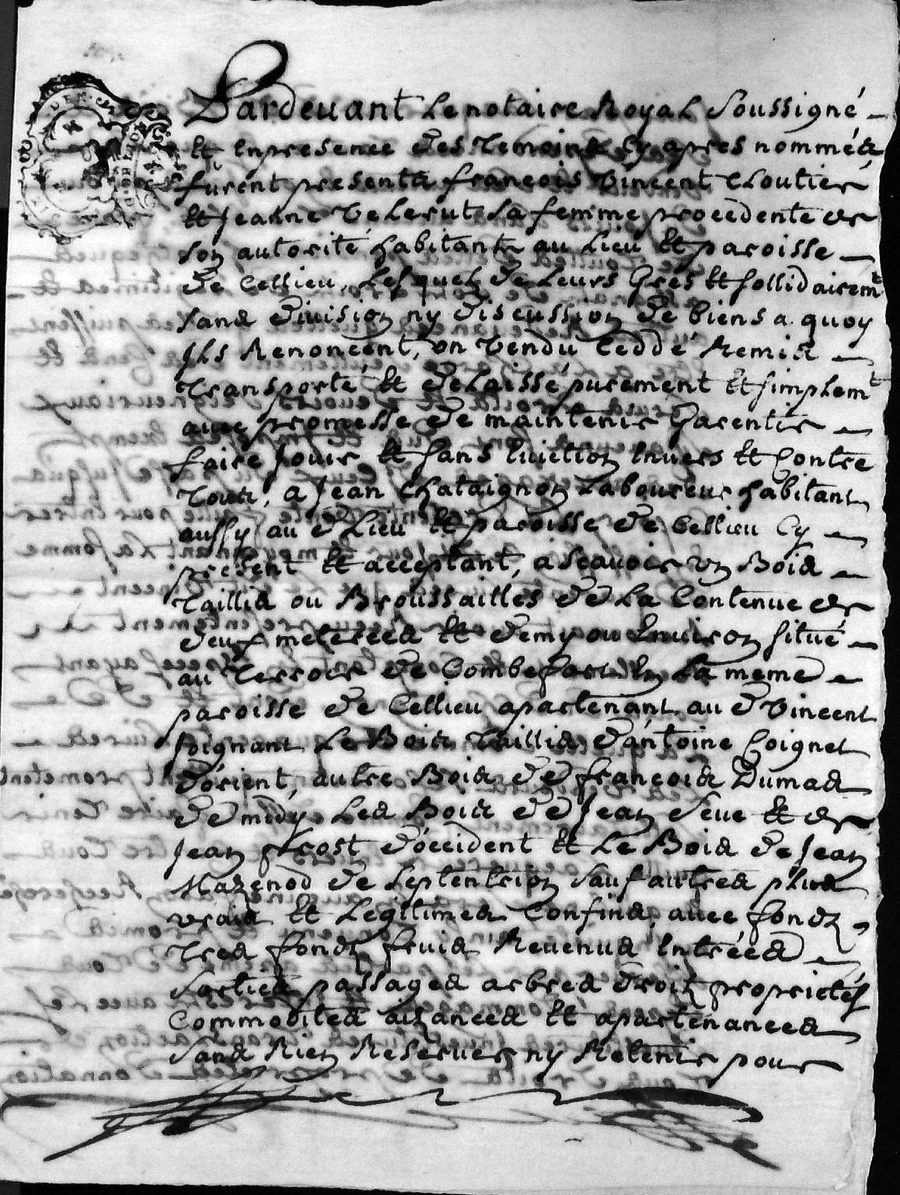 Pardevant Le notaire Royal Soussigné
Et En presence des Temoins Cy apres nommés
furent presents françois Vincent Cloutier
Et Jeanne Velerut Sa femme procedente de
Son autorité habitants au Lieu Et paroisse
de Cellieu, Lesquels de Leurs Gres Et sollidairemt
sans division ny discussion de biens a quoy
Ils Renoncent, on Vendu Cedde Remis
Transporté Et delaissé purement Et simplemt
avec promesse de maintenir Garentir
faire Jouir Et sans Eviction Envers Et Contre
Tous, a Jean Chataignon Laboureur habitant
aussy au d Lieu Et paroisse de Cellieu Cy
present Et acceptant, a Scavoir un Bois
Taillis ou Broussailles de La Contenue de
deuf meterées Et demy ou Environ situé
au Terroir de Combefort En La meme
paroisse de Cellieu apartenant au d Vincent
Joignant Le Bois Taillis d'antoine Coignet
d'orient, autre Bois de françois Dumas
de midy Les Bois de Jean Seve Et de
Jean d'occident Et Le Bois de Jean
Mazenod de Septentrion Sauf autres plus
vrais Et Legitimes Confins, avec fondz,
Tres fondz fruis Revenus Entrées
Sorties passages arbres droitz proprietés
Commodites aisances Et apartenances
Sans Rien Reserver ny Retenir pour